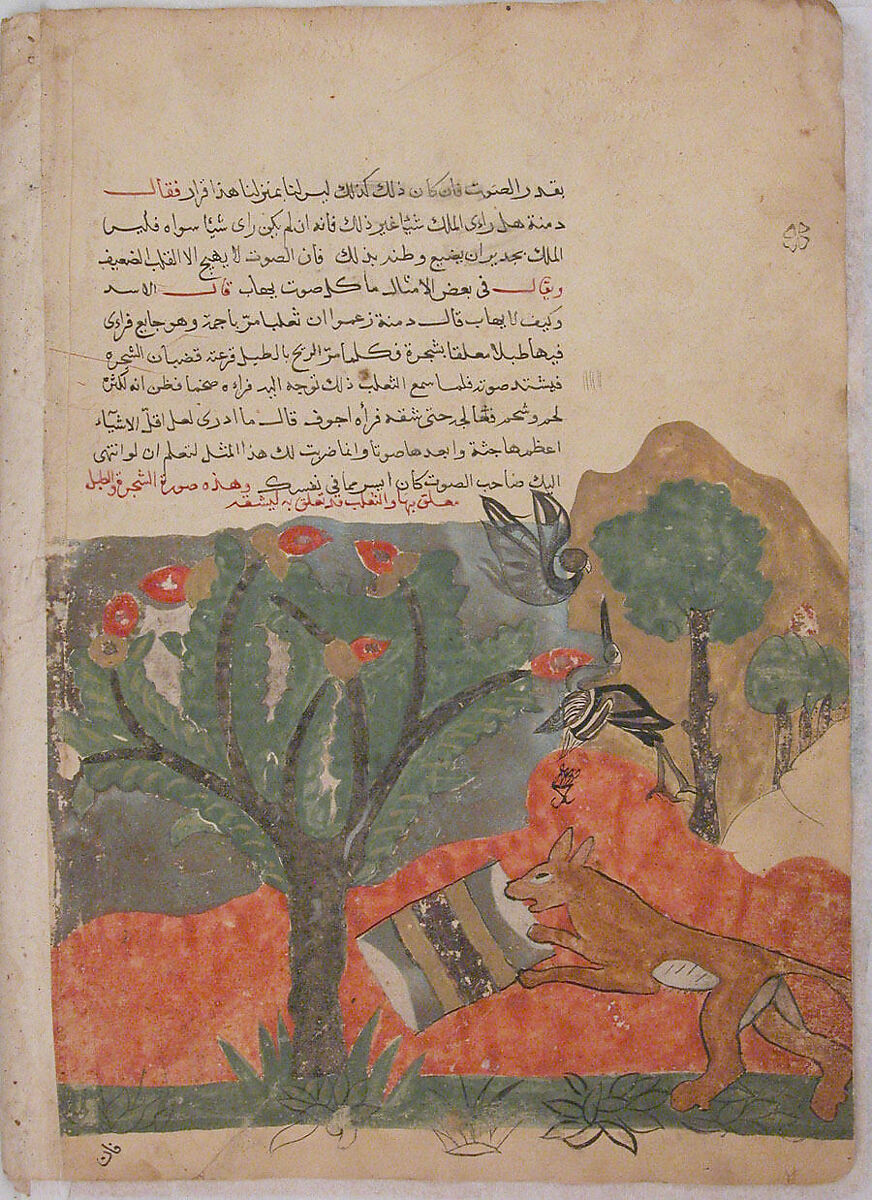 بقدر الصوت فان كان ذلك كذلك ليس لنا بمنزلنا هذا قرار فقال
دمنة هل راى الملك شيئا غير ذلك فانه ان لم يكن راى شيئا سواه فليس
الملك بجدير ان يضيع وطنه بذلك فان الصوت لا يهيج الا القلب الضعيف
ويقال فى بعض الامثال ما كل صوت يهاب قال الاسد
وكيف لا يهاب قال دمنة زعموا ان ثعلبا مرّ باجمة وهو جايع فراى
فيها طبلا معلقا بشجرة فكلما مرّ الريح بالطبل قرعته قضبان الشجره
فيشتد صوته فلما سمع الثعلب ذلك توجه اليه فراه ضخما فظن انه لكثرة
لحم وشحم حتى شقه فرأه اجوف قال ما ادرى لعل اقلّ الاشيآء
اعظمها جثة وابعدها صوتا وانما ضربت لك هذا المثل لتعلم ان لو انتهى
اليك صاحب الصوت كان ايسر مما فى نفسك وهذه صورة الشجرة والطبل
معلق بها والثعلب قد تعلق به ليشقه
فان